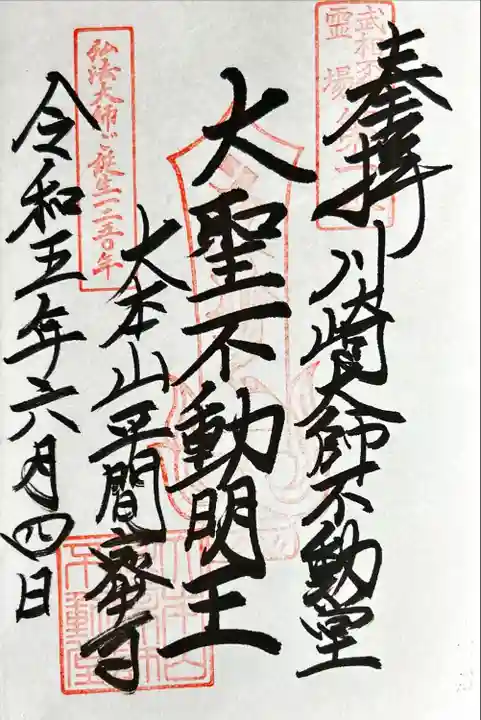 奉拝
川崎大師不動堂
大聖不動明王
大本山平間寺
令和五年六月四日
弘法大師ご誕生一二五〇年
霊場